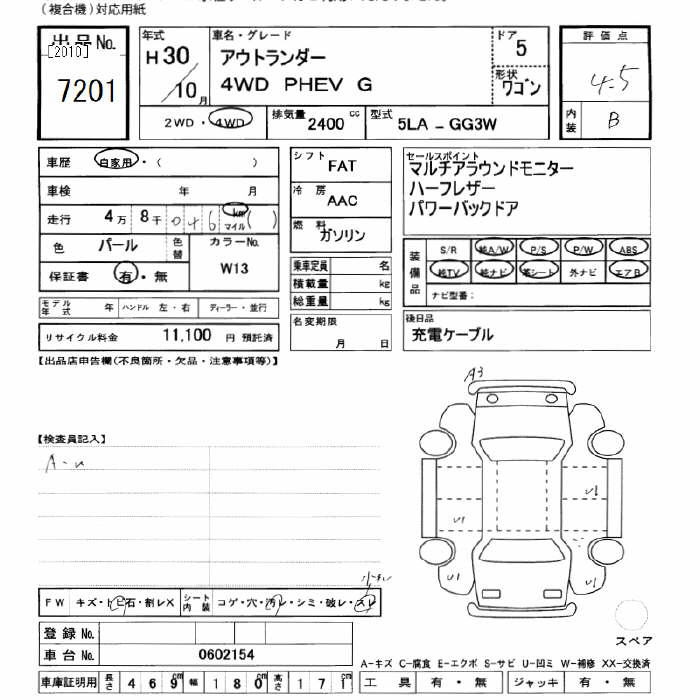 (複合機)対応用紙
出品No.
[2010]
7201
年式
H30
10月
車名・グレード
アウトランダー
4WD PHEV G
ドア
5
形状
ワゴン
2WD・4WD
排気量
2400 cc
型式
5LA - GG3W
評価点
4.5
内装
B
車歴 自家用・( )
車検 年 月
走行 4万 8千 046 km マイル ( )
色 パール 色替
カラーNo.
W13
保証書 有・無
モデル年式 年 ハンドル 左・右 ディーラー・並行
リサイクル料金 11,100 円 預託済
シフト FAT
冷房 AAC
燃料 ガソリン
乗車定員 名
積載量 kg
総重量 kg
名変期限
月 日
セールスポイント
マルチアラウンドモニター
ハーフレザー
パワーバックドア
装備品
S/R 純A/W P/S P/W ABS
純TV 純ナビ 革シート 外ナビ エアB
ナビ型番:
後日品
充電ケーブル
【出品店申告欄(不良箇所・欠品・注意事項等)】
【検査員記入】
A-u
A3
U1
U1
U1
U1
FW キズ・トビ石・割レX シート内装 コゲ・穴・汚レ・シミ・破レ・スレ
登録No.
車台No. 0602154
車庫証明用 長さ 469cm 幅 180cm 高さ 171cm
スペア
A-キズ C-腐食 E-エクボ S-サビ U-凹ミ W-補修 XX-交換済
工具 有・無 ジャッキ 有・無